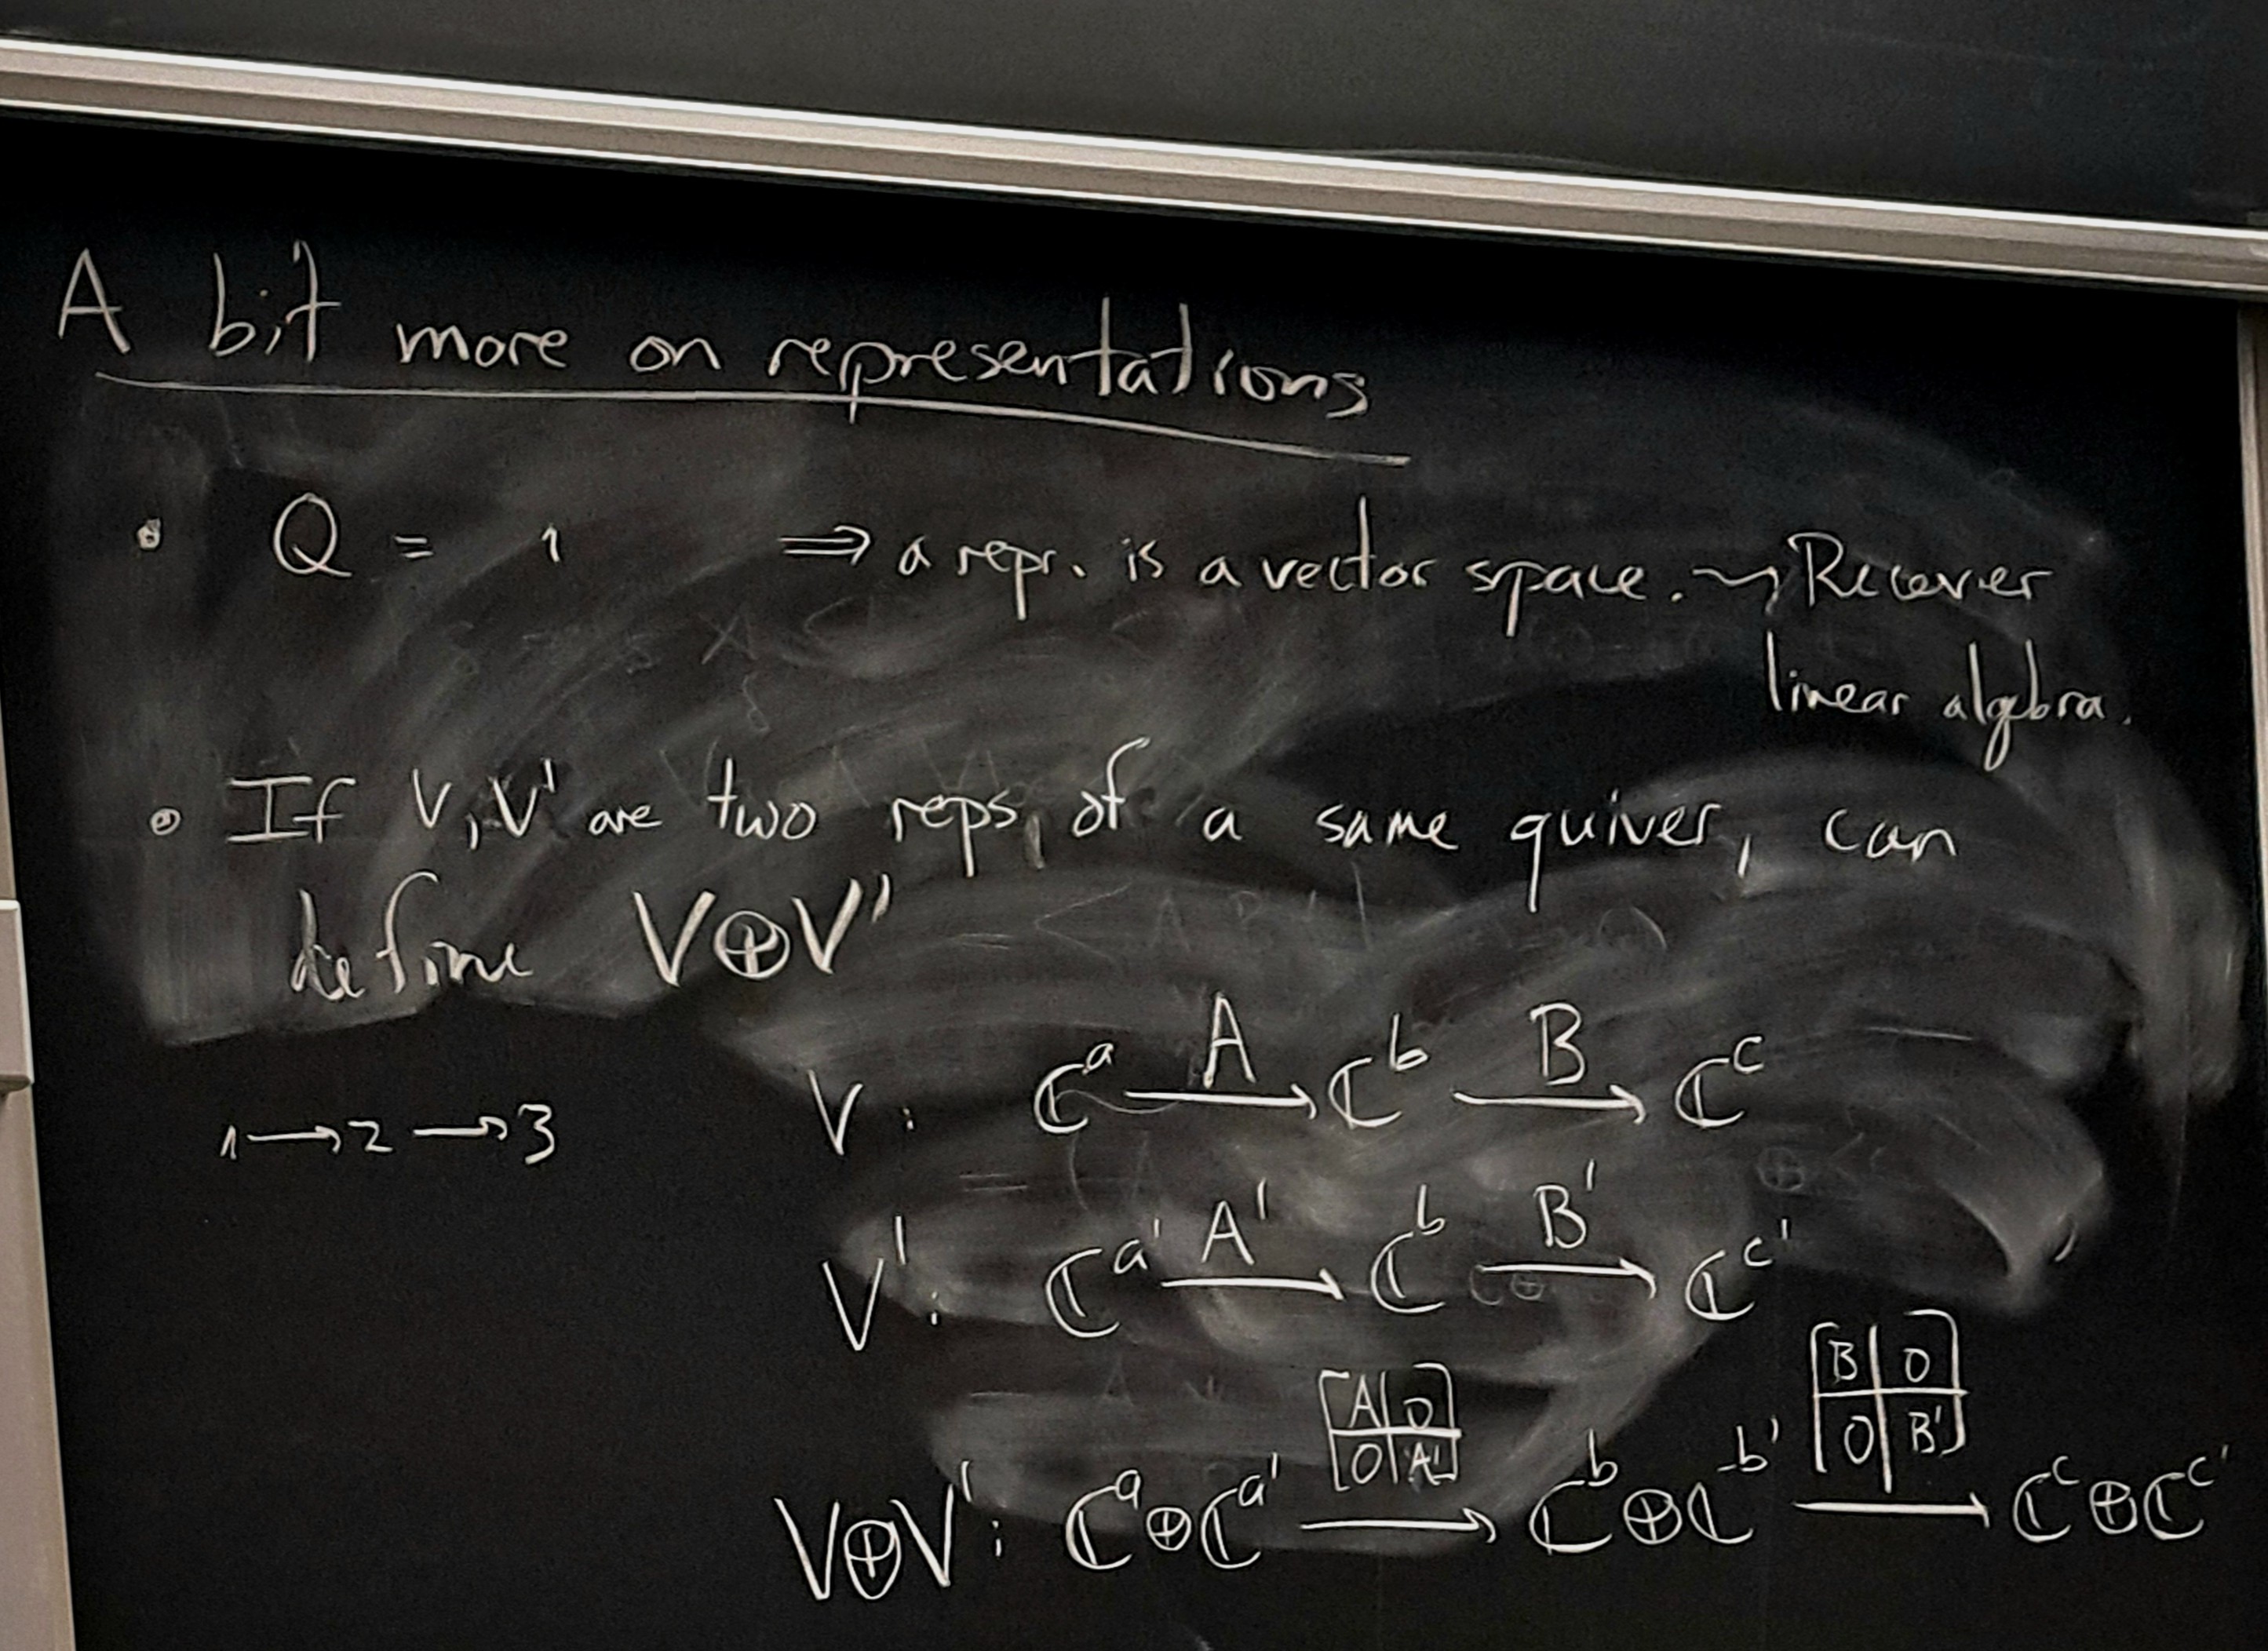 A bit more on representations
• Q = 1 ⇒ a repr. is a vector space. ⇝ Recover
linear algebra.
• If V, V' are two reps, of a same quiver, can
define V⊕V'
1 → 2 → 3
V: ℂ^a —A→ ℂ^b —B→ ℂ^c
V': ℂ^a' —A'→ ℂ^b —B'→ ℂ^c'
V⊕V': ℂ^a⊕ℂ^a' —[A 0; 0 A']→ ℂ^b⊕ℂ^b' —[B 0; 0 B']→ ℂ^c⊕ℂ^c'